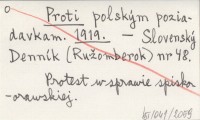 Proti polským pozia-
davkam. 1919. — Slovenský
Denník (Ružomberok) nr 48.
Protest w sprawie spisko-
orawskiej.